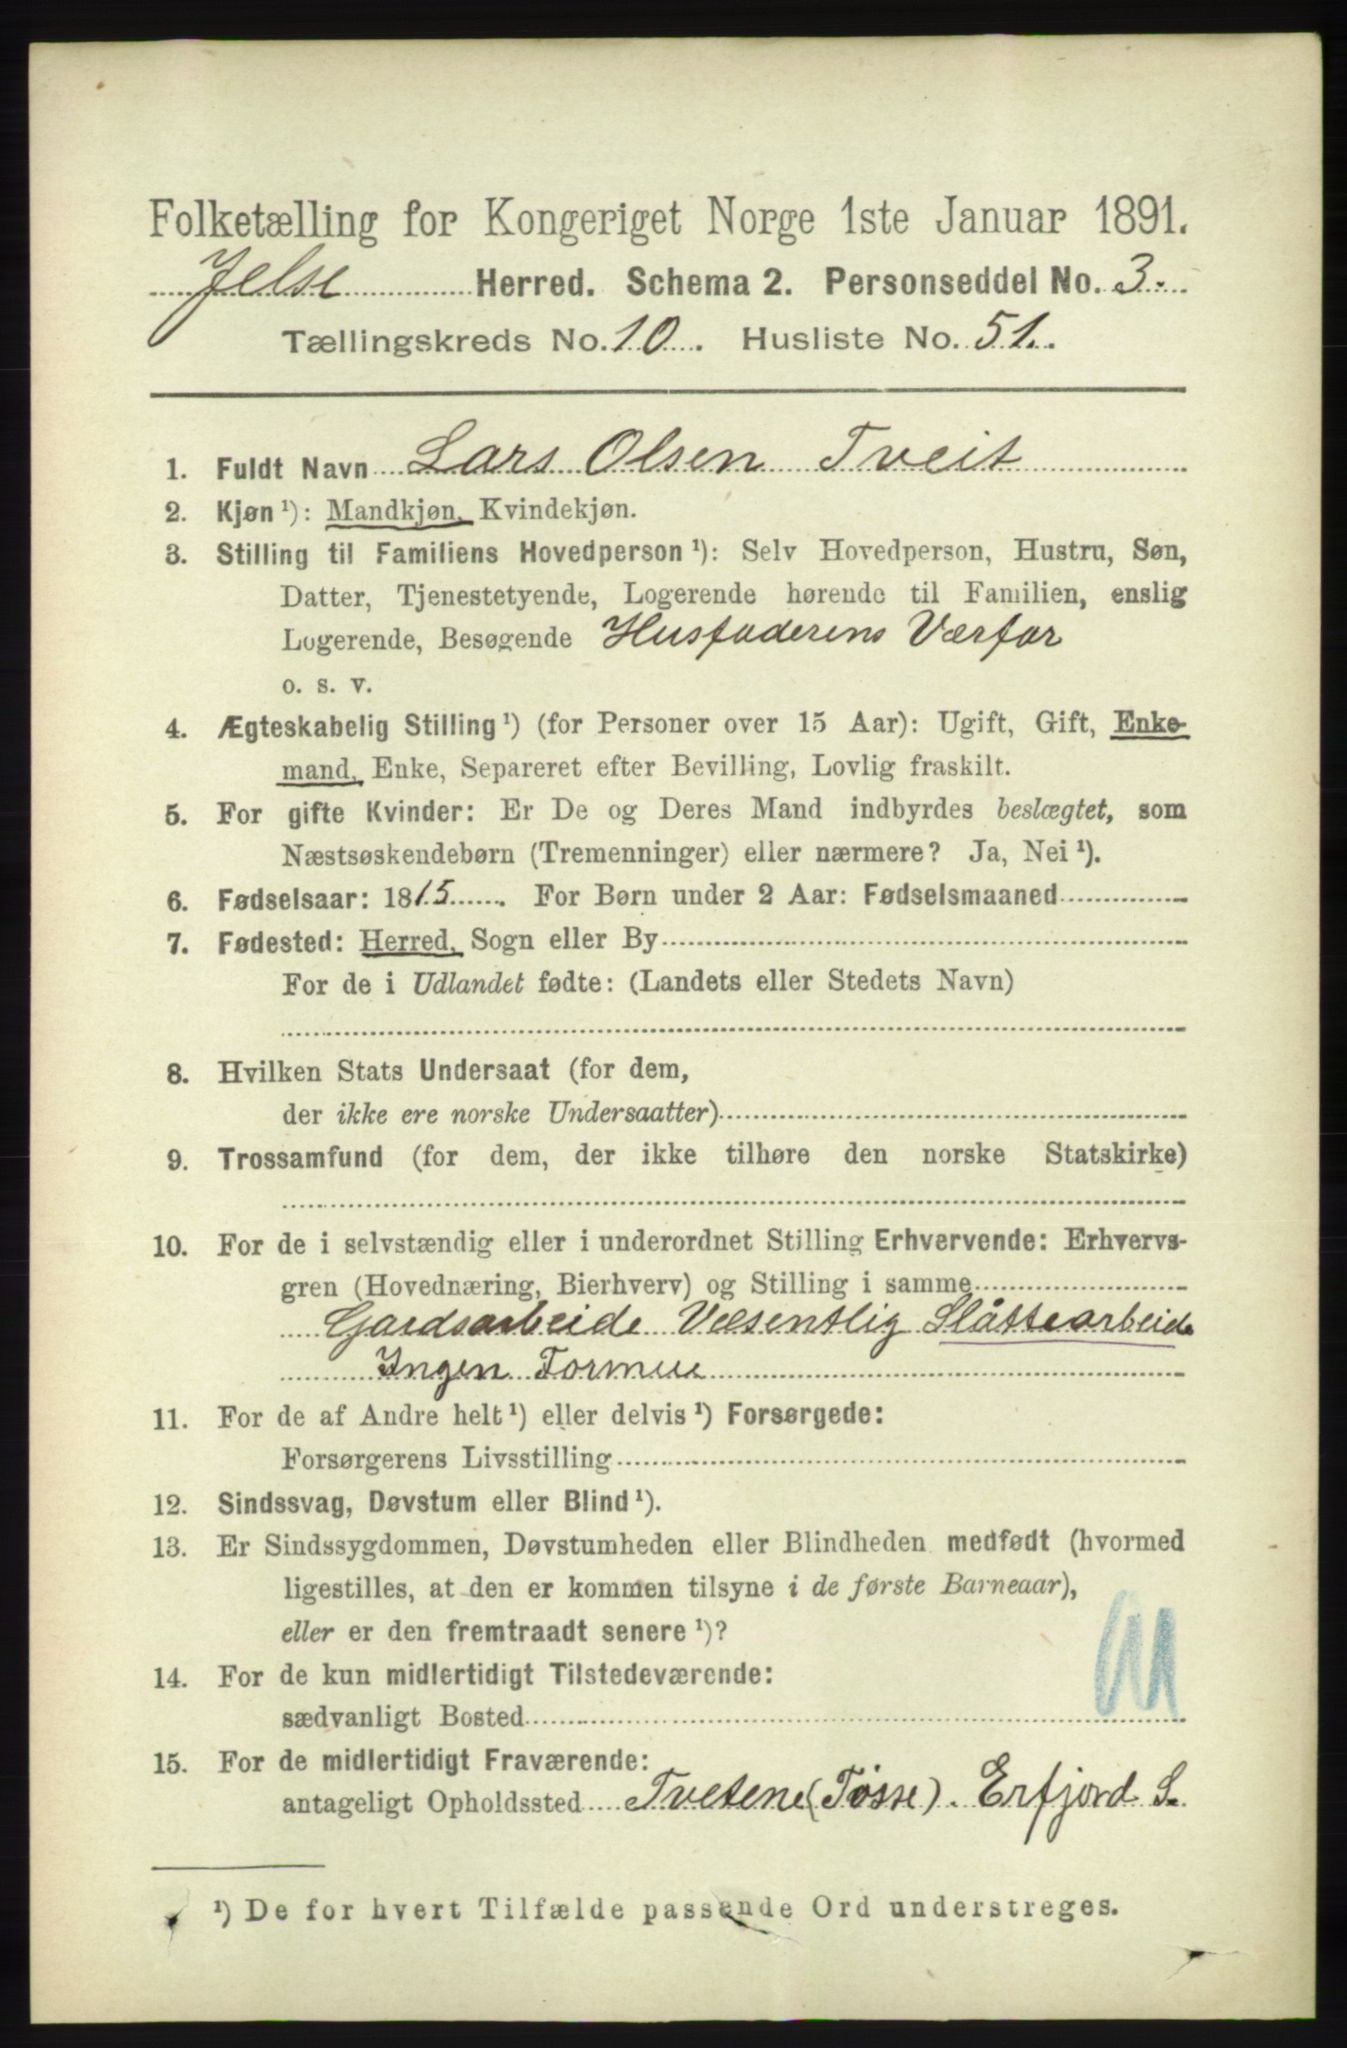 Folketælling for Kongeriget Norge 1ste Januar 1891.
Jelse Herred. Schema 2. Personseddel No. 3.
Tællingskreds No. 10. Husliste No. 51.
1. Fuldt Navn Lars Olsen Tveit
2. Kjøn ¹): Mandkjøn, Kvindekjøn.
3. Stilling til Familiens Hovedperson ¹): Selv Hovedperson, Hustru, Søn,
Datter, Tjenestetyende, Logerende hørende til Familien, enslig
Logerende, Besøgende Husfaderens Værfar
o. s. v.
4. Ægteskabelig Stilling ¹) (for Personer over 15 Aar): Ugift, Gift, Enke-
mand, Enke, Separeret efter Bevilling, Lovlig fraskilt.
5. For gifte Kvinder: Er De og Deres Mand indbyrdes beslægtet, som
Næstsøskendebørn (Tremenninger) eller nærmere? Ja, Nei ¹).
6. Fødselsaar: 1815. For Børn under 2 Aar: Fødselsmaaned
7. Fødested: Herred, Sogn eller By
For de i Udlandet fødte: (Landets eller Stedets Navn)
8. Hvilken Stats Undersaat (for dem,
der ikke ere norske Undersaatter)
9. Trossamfund (for dem, der ikke tilhøre den norske Statskirke)
10. For de i selvstændig eller i underordnet Stilling Erhvervende: Erhvervs-
gren (Hovednæring, Bierhverv) og Stilling i samme
Gardsarbeide Væsentlig Slåttearbeide
Ingen Formue
11. For de af Andre helt ¹) eller delvis ¹) Forsørgede:
Forsørgerens Livsstilling
12. Sindssvag, Døvstum eller Blind ¹).
13. Er Sindssygdommen, Døvstumheden eller Blindheden medfødt (hvormed
ligestilles, at den er kommen tilsyne i de første Barneaar),
eller er den fremtraadt senere ¹)?
14. For de kun midlertidigt Tilstedeværende:
sædvanligt Bosted
15. For de midlertidigt Fraværende:
antageligt Opholdssted Tvetene (Tøsse). Erfjord S.
¹) De for hvert Tilfælde passende Ord understreges.